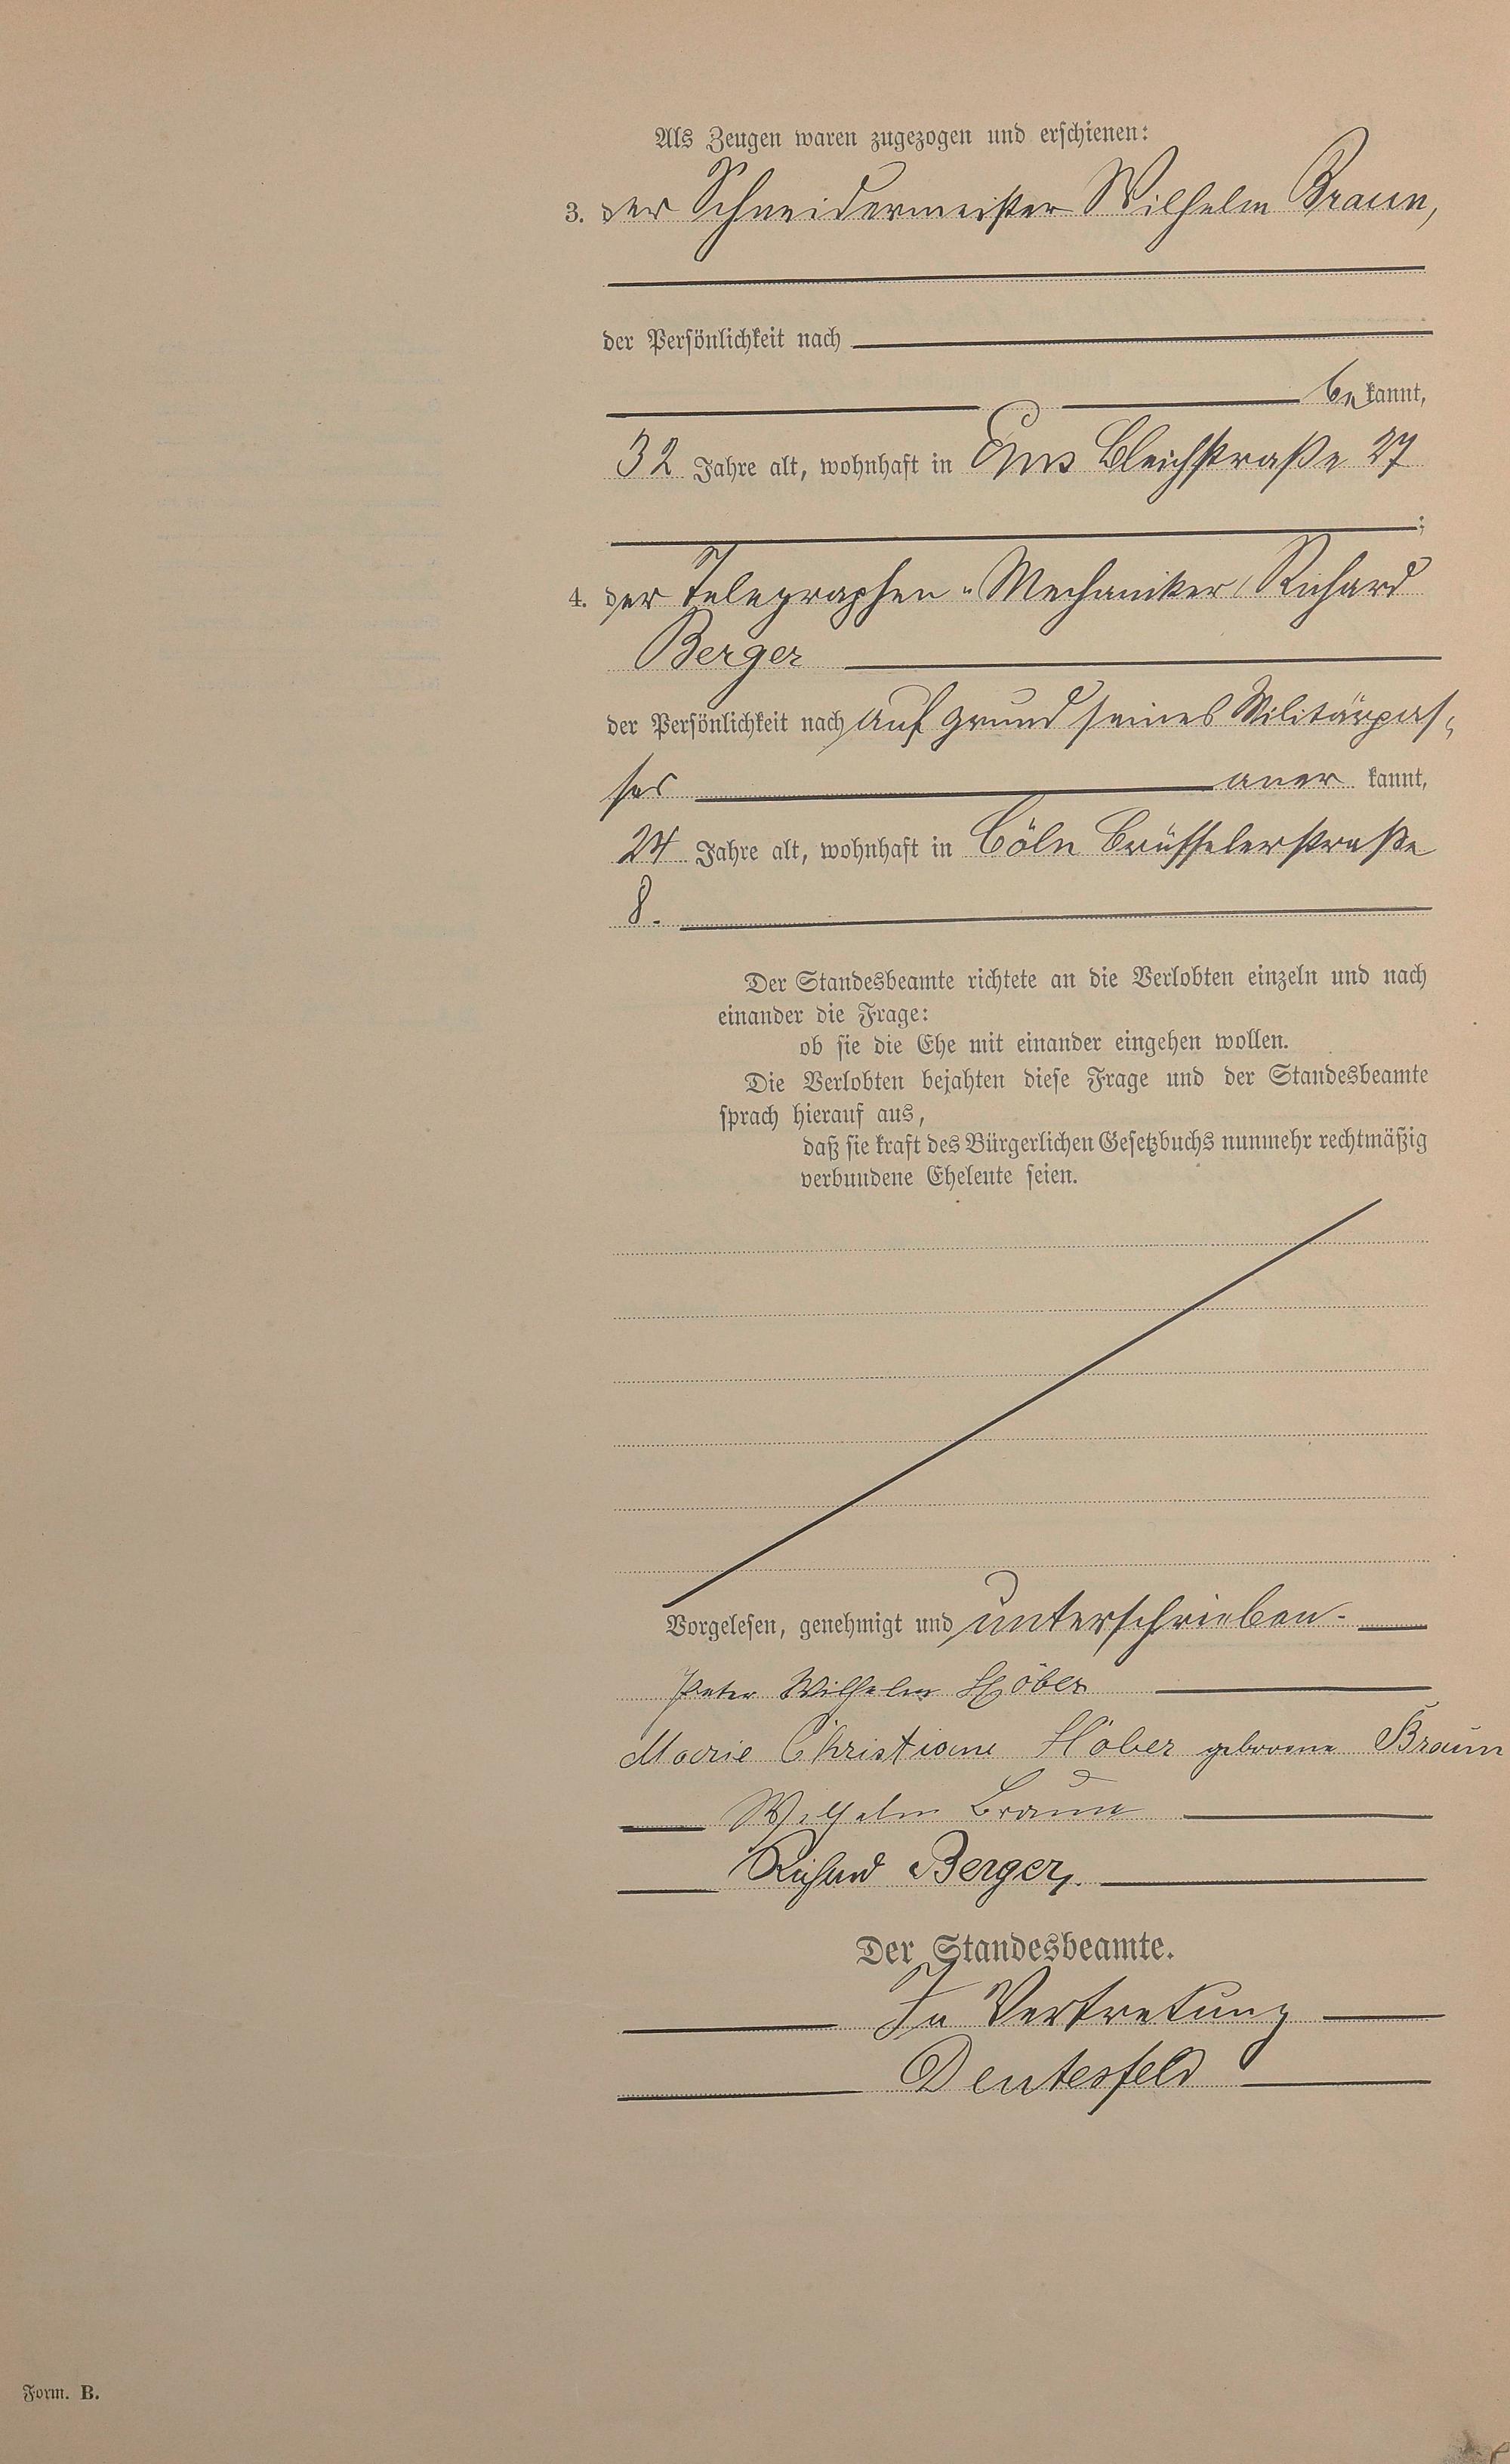 Als Zeugen waren zugezogen und erschienen:
3. der Schneidermeister Wilhelm Braun,
der Persönlichkeit nach
be kannt,
32 Jahre alt, wohnhaft in Ems Bleichstraße 27
;
4. der Telegraphen-Mechaniker Richard
Berger
der Persönlichkeit nach auf Grund seines Militärpas-
ses aner kannt,
24 Jahre alt, wohnhaft in Cöln Brüsselerstraße
8.
Der Standesbeamte richtete an die Verlobten einzeln und nach
einander die Frage:
ob sie die Ehe mit einander eingehen wollen.
Die Verlobten bejahten diese Frage und der Standesbeamte
sprach hierauf aus,
daß sie kraft des Bürgerlichen Gesetzbuchs nunmehr rechtmäßig
verbundene Eheleute seien.
Vorgelesen, genehmigt und unterschrieben.
Peter Wilhelm Höber
Marie Christiane Höber geborene Braun
Wilhelm Braun
Richard Berger.
Der Standesbeamte.
In Vertretung
Deutesfeld
Form. B.